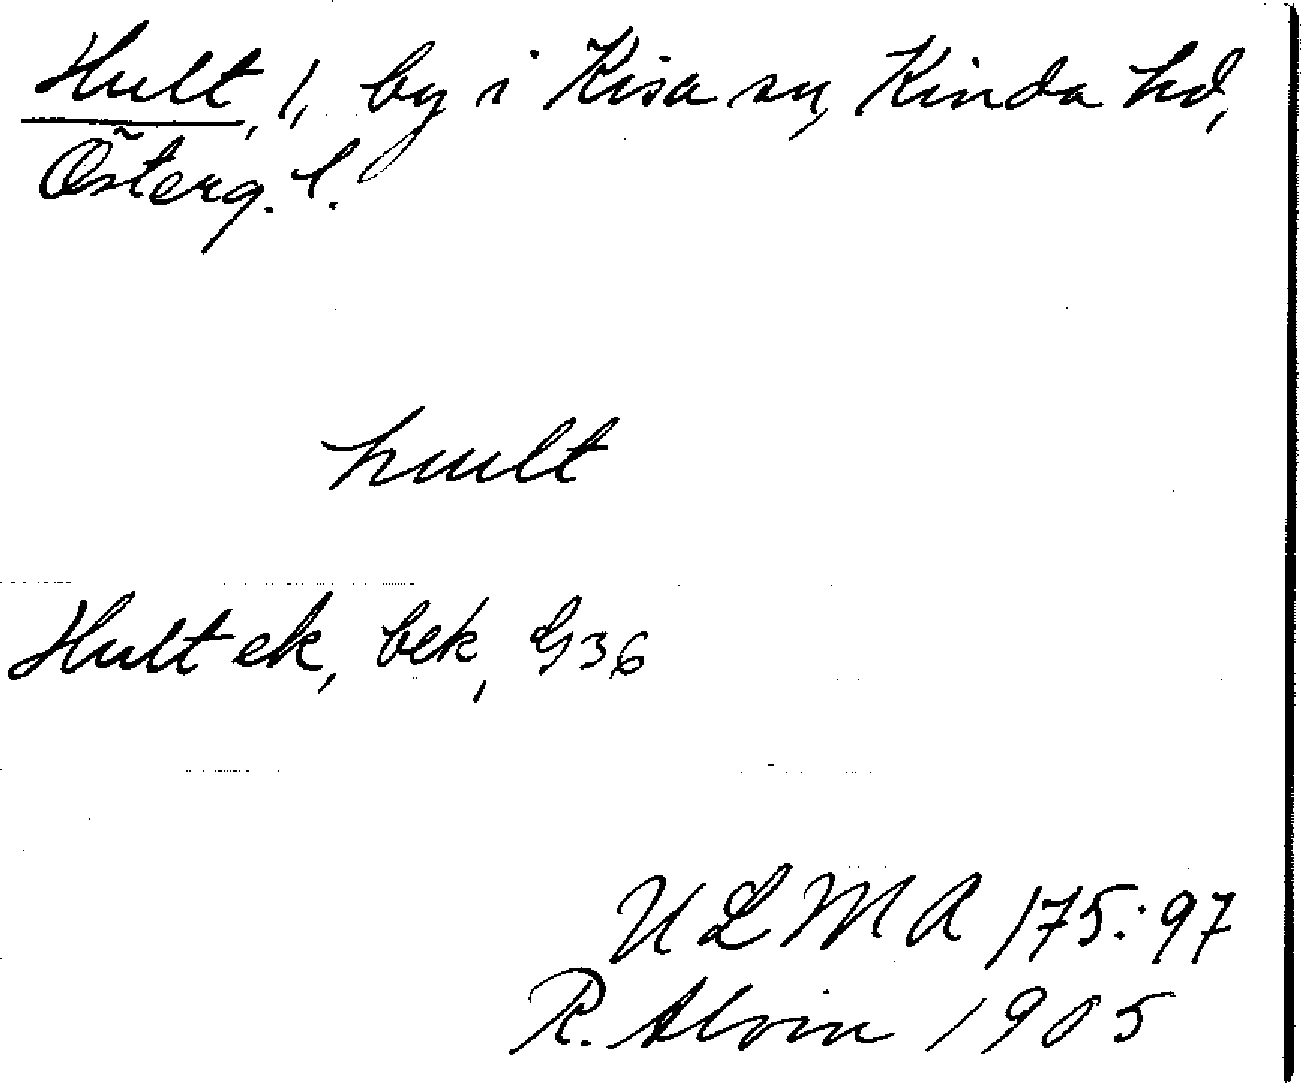 Hult, 1, by i Kisa sn, Kinda hd,
Österg. l.
hult
Hult ek, bek, G36
ULMA 175:97
R. Alvin 1905